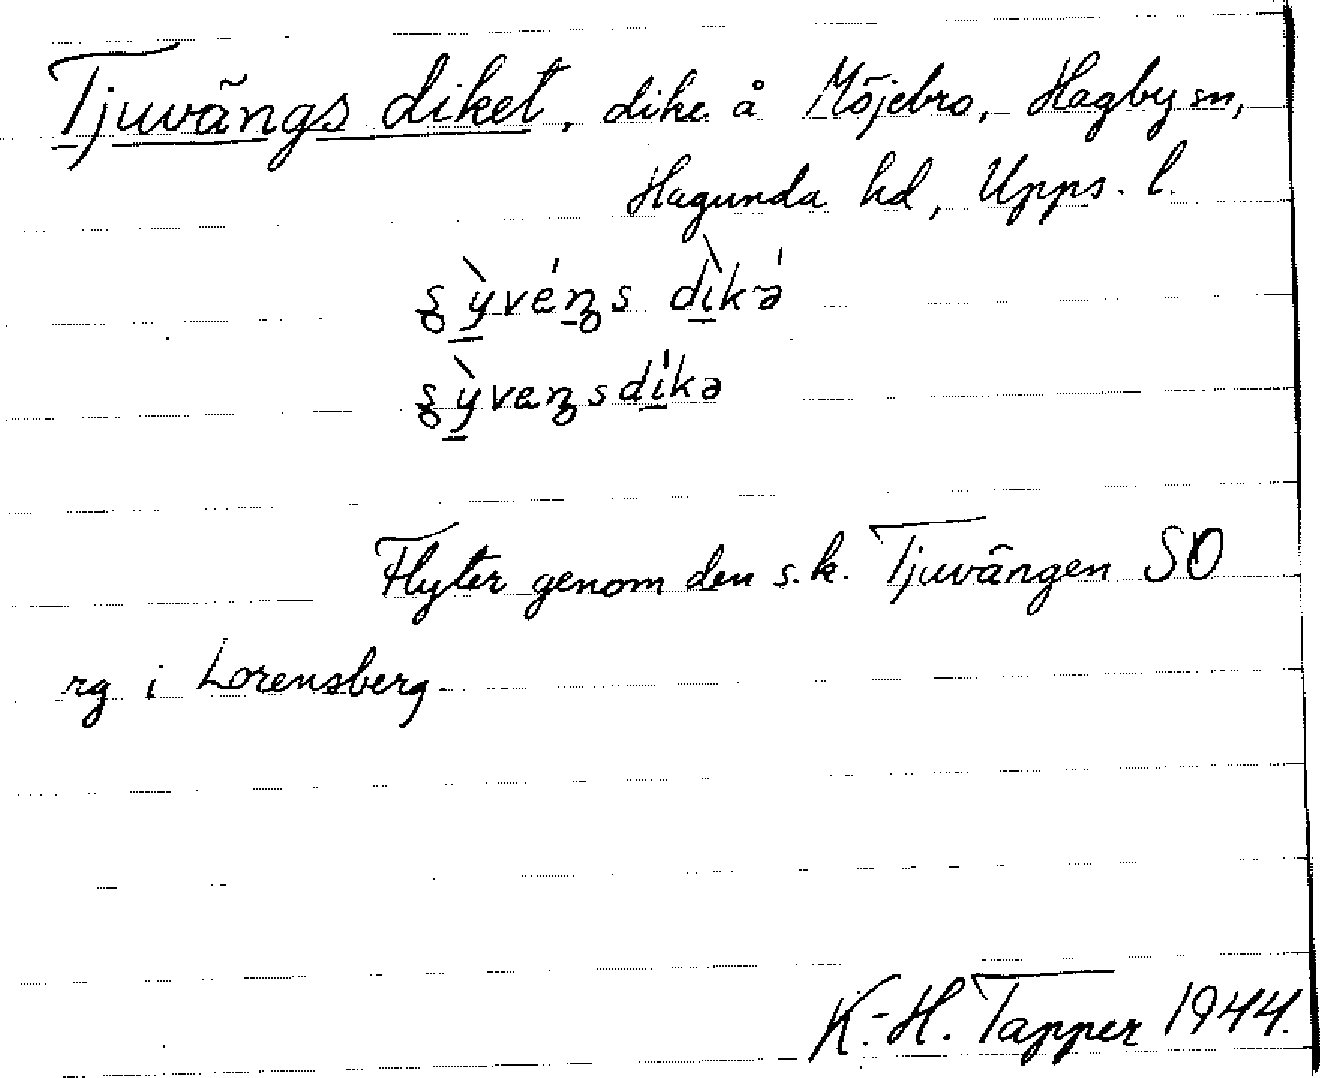 Tjuvängs diket, dike å Möjebro, Hagby sn,
Hagunda hd, Upps. l.
Flyter genom den s.k. Tjuvängen SO
rg i Lorensberg
K.-H. Tapper 1944.